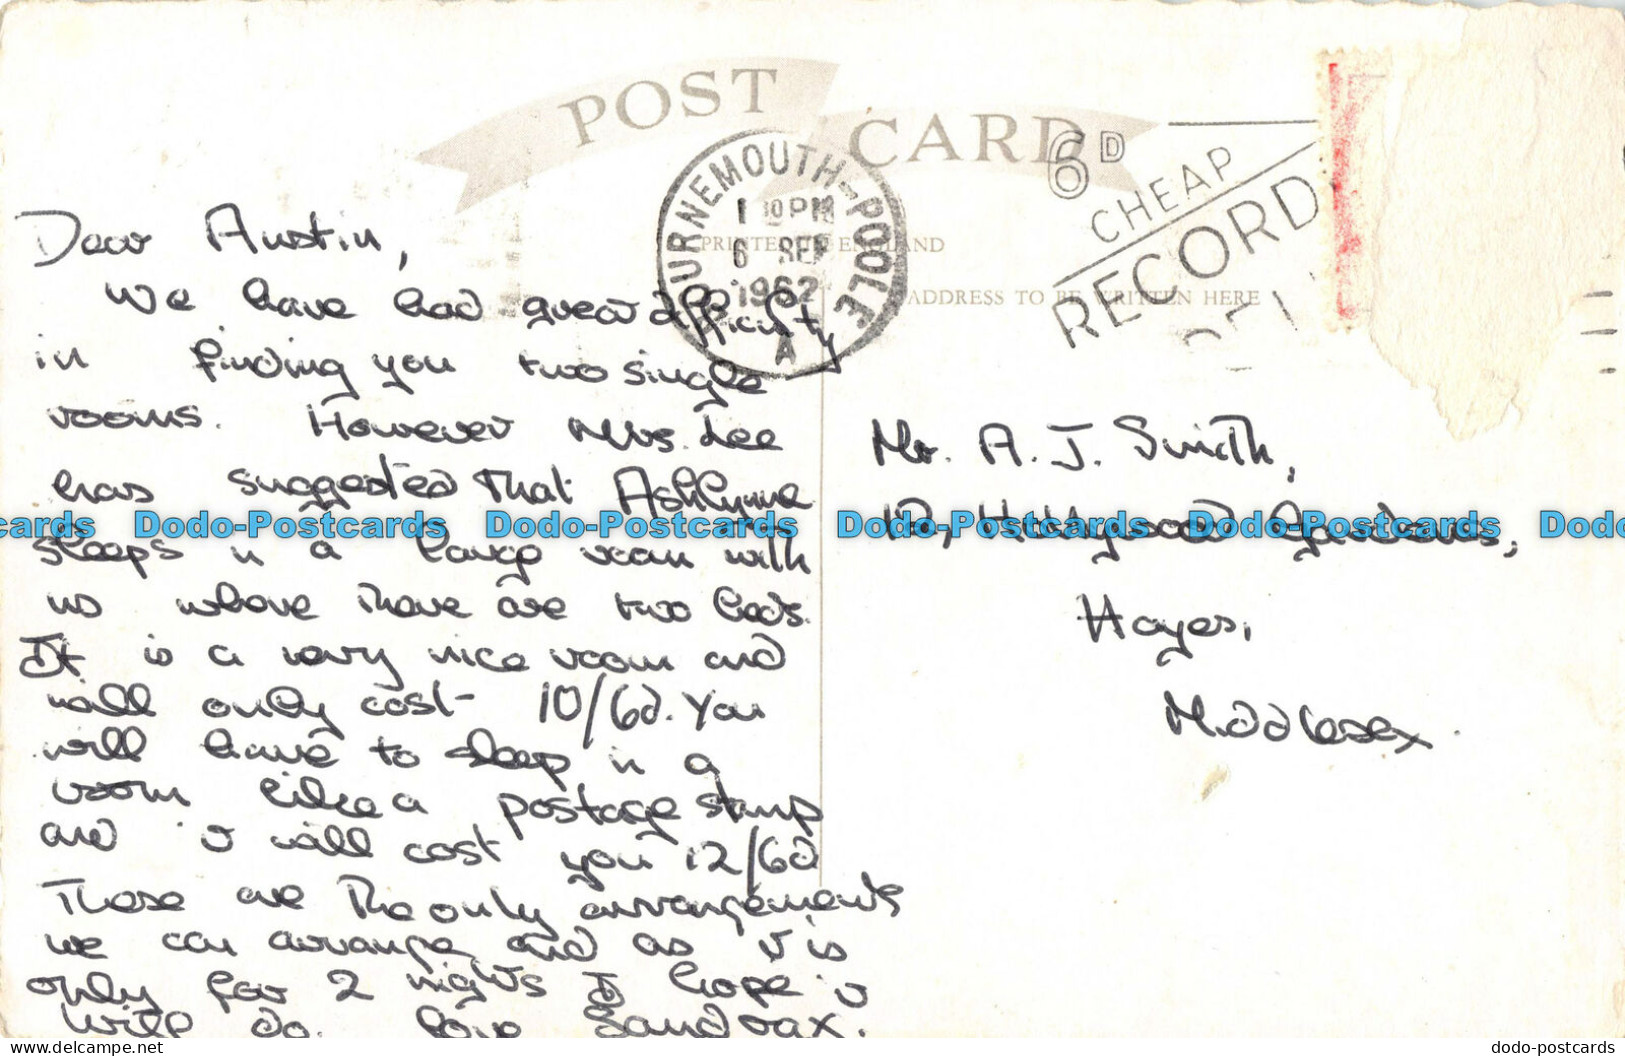 POST CARD
BOURNEMOUTH-POOLE
1 30PM
6 SEP
1962
A
6D
CHEAP
RECORD
PRINTED IN ENGLAND
ADDRESS TO BE WRITTEN HERE
Dear Austin,
We have had great difficulty
in finding you two single
rooms. However Mrs. Lee
has suggested that Ashlynne
sleeps in a large room with
us where there are two beds.
It is a very nice room and
will only cost 10/6d. You
will have to sleep in a
room like a postage stamp
and it will cost you 12/6d
These are the only arrangements
we can arrange and as it is
only for 2 nights I hope it
will do. love Sandra x.
Mr. A. J. Smith,
Gardens,
Hayes,
Middlesex.
Dodo-Postcards Dodo-Postcards Dodo-Postcards
dodo-postcards.com